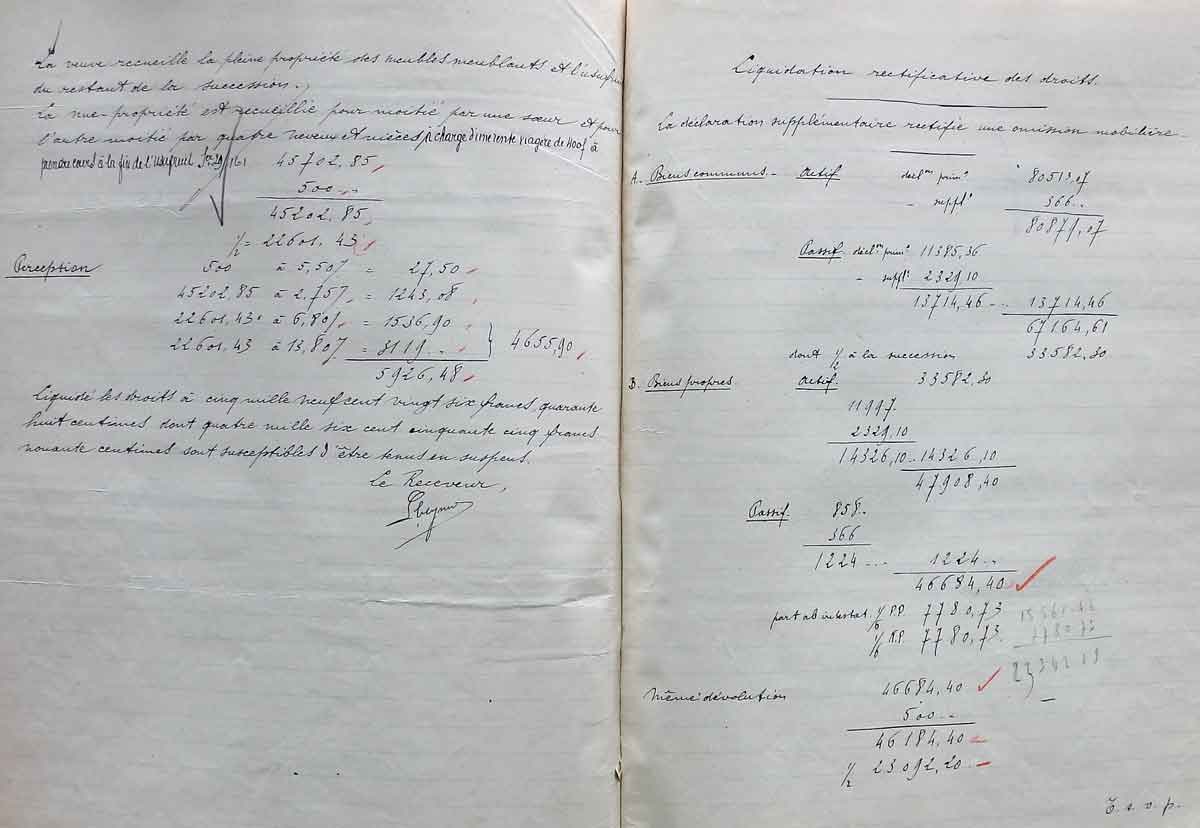 La veuve recueille la pleine propriété des meubles meublants et l'usufruit
du restant de la succession.
La nue-propriété est recueillie pour moitié par une sœur et pour
l'autre moitié par quatre neveux et nièces à charge d'une rente viagère de 400f à
prendre cours à la fin de l'usufruit
45702,85
500 ..
45202,85
½ = 22601,43
Perception
500 à 5,50% = 27,50
45202,85 à 2,75% = 1243,08
22601,43 à 6,80% = 1536,90
22601,43 à 13,80% = 3119 .. } 4655,90
5926,48
Liquidé les droits à cinq mille neuf cent vingt six francs, quarante
huit centimes dont quatre mille six cent cinquante cinq francs
nonante centimes sont susceptibles d'être tenus en suspens.
Le Receveur,
Liquidation rectificative des droits.
La déclaration supplémentaire rectifie une omission mobilière.
A. Biens communs - Actif décl.on prim.e 80513,07
- suppl.e 366 ..
80879,07
Passif décl.on prim.e 11385,36
- suppl.e 2329,10
13714,46 .. 13714,46
67164,61
dont ½ à la succession 33582,30
B. Biens propres. Actif. 33582,30
11997.
2329,10
14326,10 .. 14326,10
47908,40
Passif. 858.
366
1224 ... 1224 ..
46684,40
part ab intestat. 1/6 P.P. 7780,73
1/6 N.P. 7780,73
Même dévolution 46684,40
500 ..
46184,40
½ 23092,20
T. s. v. p.